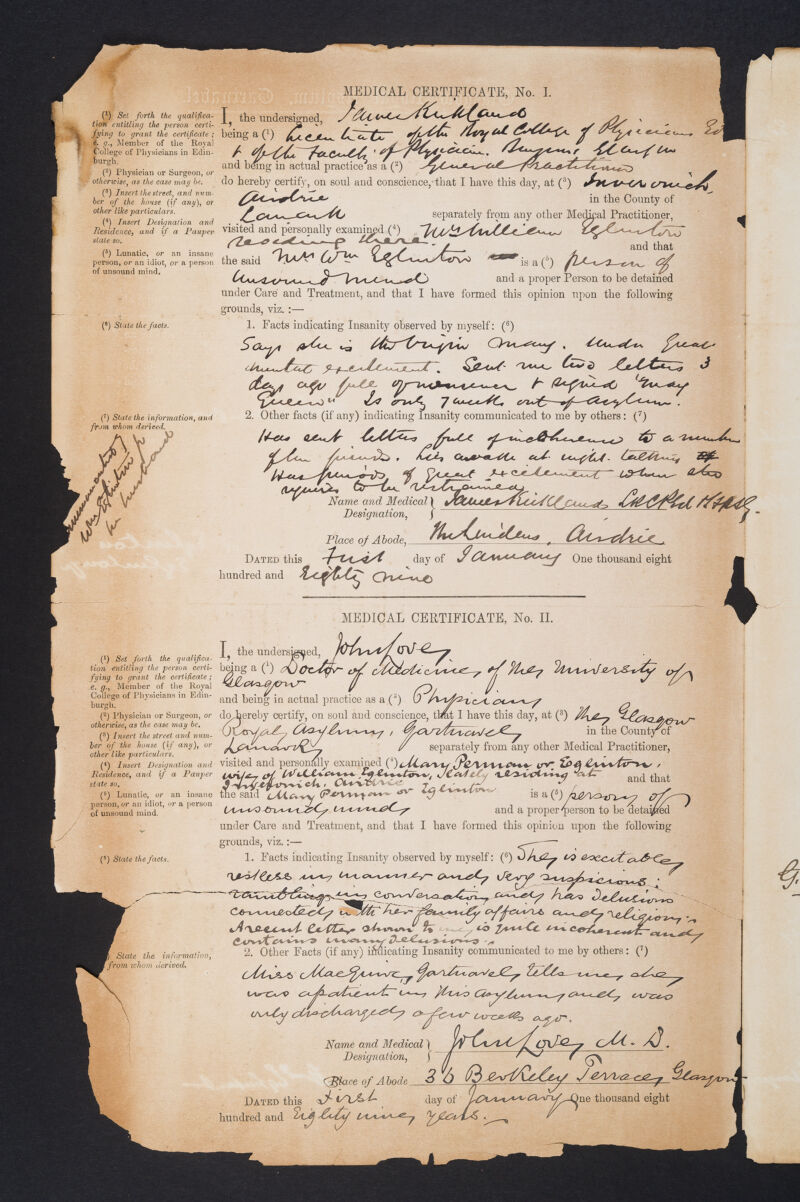 MEDICAL CERTIFICATE, No. I.
(1) Set forth the qualifica-
tion entitling the person certi-
fying to grant the certificate;
e. g., Member of the Royal
College of Physicians in Edin-
burgh.
(2) Physician or Surgeon, or
otherwise, as the case may be.
(3) Insert the street, and num-
ber of the house (if any), or
other like particulars.
(4) Insert Designation and
Residence, and if a Pauper
state so.
(5) Lunatic, or an insane
person, or an idiot, or a person
of unsound mind.
I, the undersigned, James Kirkland
being a (1) Licentiate of the Royal College of Physicians Ed
& of the Faculty of Physicians Surgeons Glasgow
and being in actual practice as a (2) General Practitioner
do hereby certify, on soul and conscience, that I have this day, at (3) Inveronich,
Airdrie in the County of
Lanark separately from any other Medical Practitioner,
visited and personally examined (4) Mrs William Eglinton
residing there. and that
the said Mrs Wm Eglinton is a (5) person of
unsound mind and a proper Person to be detained
under Care and Treatment, and that I have formed this opinion upon the following
grounds, viz. :—
(6) State the facts.
1. Facts indicating Insanity observed by myself: (6)
Says she is the Virgin Mary. Under great
mental excitement. Sent me two letters 3
days ago full of nonsense & signed "Mary
Queen" Is only 7 weeks out of Asylum.
(7) State the information, and
from whom derived.
2. Other facts (if any) indicating Insanity communicated to me by others: (7)
Has sent letters full of incoherence to a number
of her friends. Lies awake at night talking
Has periods of great excitement when she
requires to be restrained
communicated by
Wm Eglinton
her husband
Name and Medical Designation, James Kirkland LRCPEd
Place of Abode, The Lindens, Airdrie
DATED this First day of January One thousand eight
hundred and Eighty nine
MEDICAL CERTIFICATE, No. II.
(1) Set forth the qualifica-
tion entitling the person certi-
fying to grant the certificate;
e. g., Member of the Royal
College of Physicians in Edin-
burgh.
(2) Physician or Surgeon, or
otherwise, as the case may be.
(3) Insert the street and num-
ber of the house (if any), or
other like particulars.
(4) Insert Designation and
Residence, and if a Pauper
state so.
(5) Lunatic, or an insane
person, or an idiot, or a person
of unsound mind.
I, the undersigned, John Love
being a (1) Doctor of Medicine of the University of
Glasgow
and being in actual practice as a (2) Physician
do hereby certify, on soul and conscience, that I have this day, at (3) the Glasgow
Royal Asylum, Gartnavel in the County of
Lanark separately from any other Medical Practitioner,
visited and personally examined (4) Mary Perman or Eglinton,
wife of William Eglinton, lately residing at and that
Inveronich, Airdrie
the said Mary Perman or Eglinton is a (5) person of
unsound mind and a proper person to be detained
under Care and Treatment, and that I have formed this opinion upon the following
grounds, viz. :—
(6) State the facts.
1. Facts indicating Insanity observed by myself: (6) She is excitable
restless in manner and very suspicious;
rambling in conversation and has delusions
connected with her family affairs and religion.
A recent letter shown to me is quite incoherent and
contains many delusions.
State the information,
from whom derived.
2. Other Facts (if any) indicating Insanity communicated to me by others: (7)
Miss Gartnavel tells me she
was a patient in this asylum and was
only discharged a few weeks ago.
Name and Medical Designation, John Love M. D.
Place of Abode 36 Berkeley Terrace Glasgow
DATED this First day of January One thousand eight
hundred and Eighty nine years.
G.